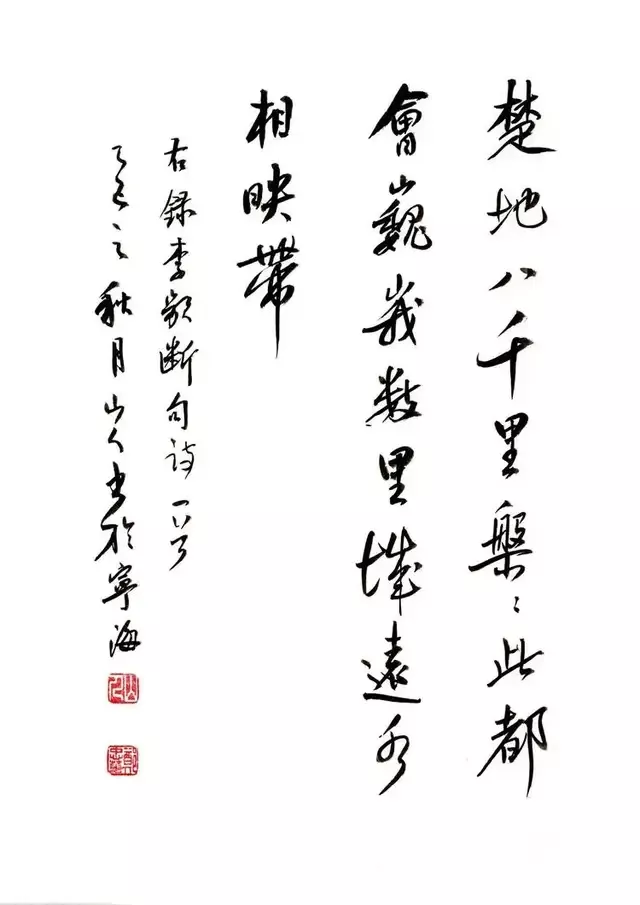 楚地八千里槃〻此都
會巍峩數里城遠水
相映帶
右錄李斷句詩一首
乙巳之秋月山人書於寧海
山人